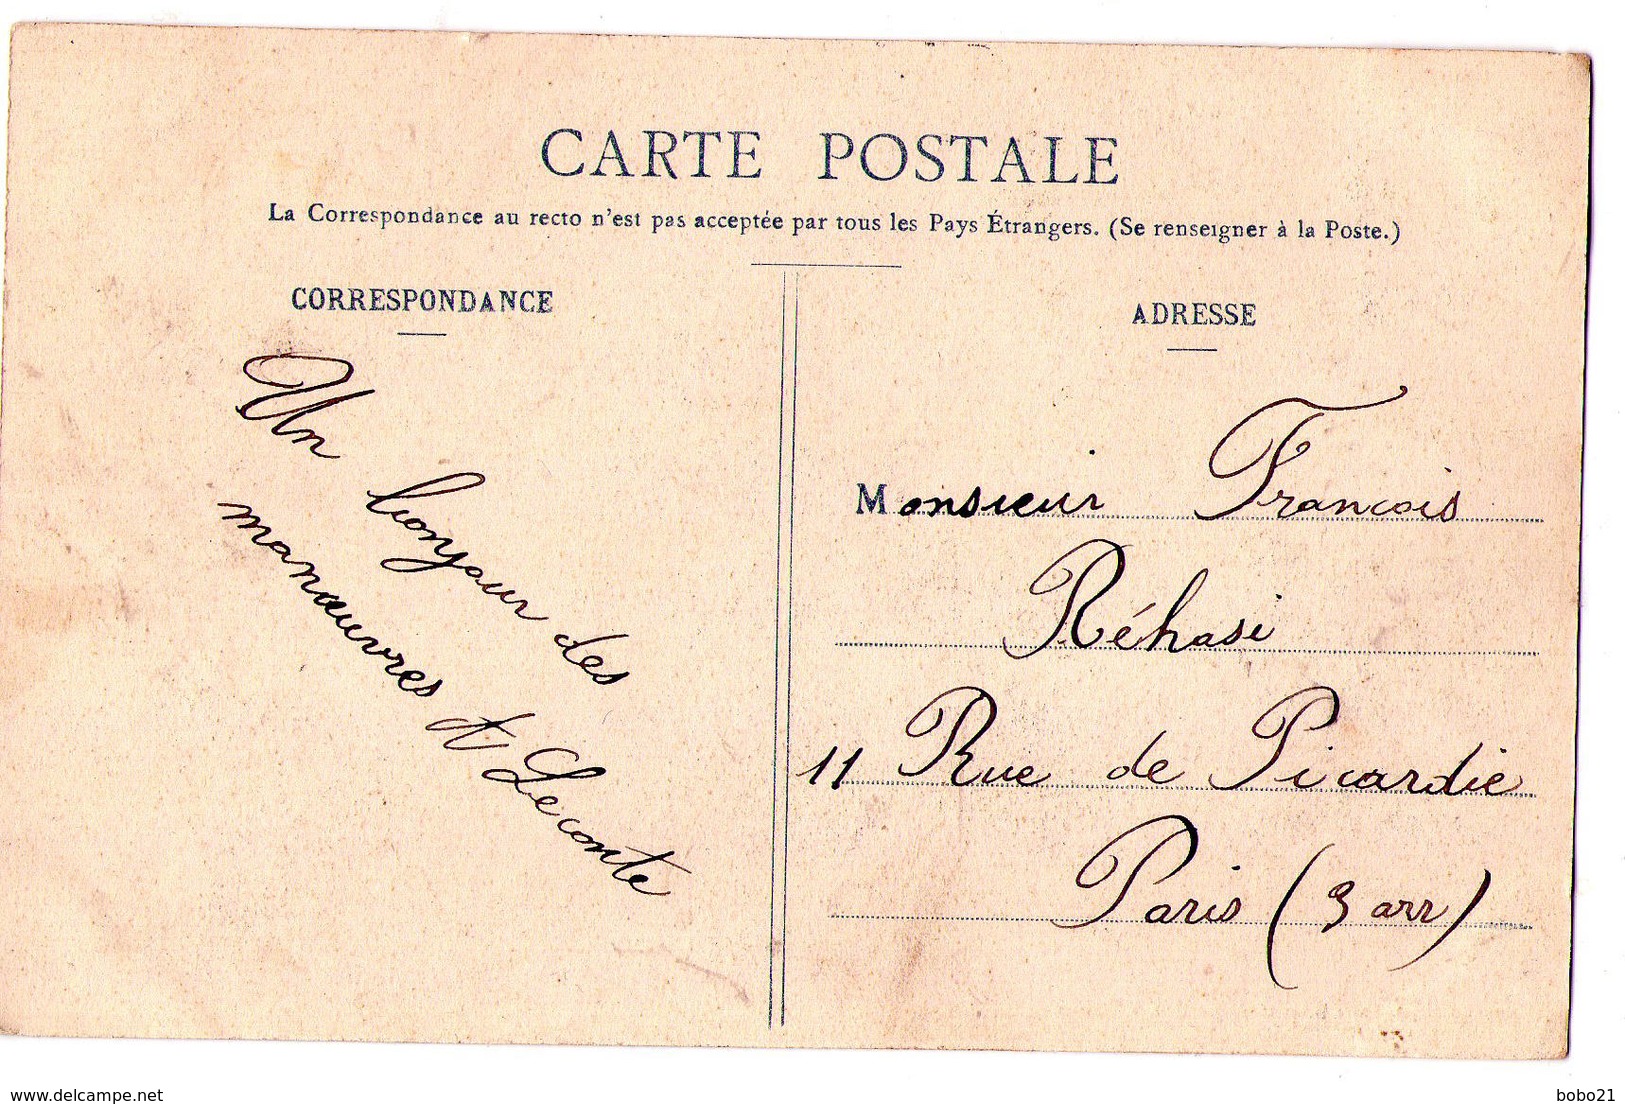 CARTE POSTALE
La Correspondance au recto n'est pas acceptée par tous les Pays Étrangers. (Se renseigner à la Poste.)
CORRESPONDANCE
Un bonjour des
manœuvres A Leconte
ADRESSE
Monsieur Francois
Réhasi
11 Rue de Picardie
Paris (3 arr)
delcampe.net
bobo21